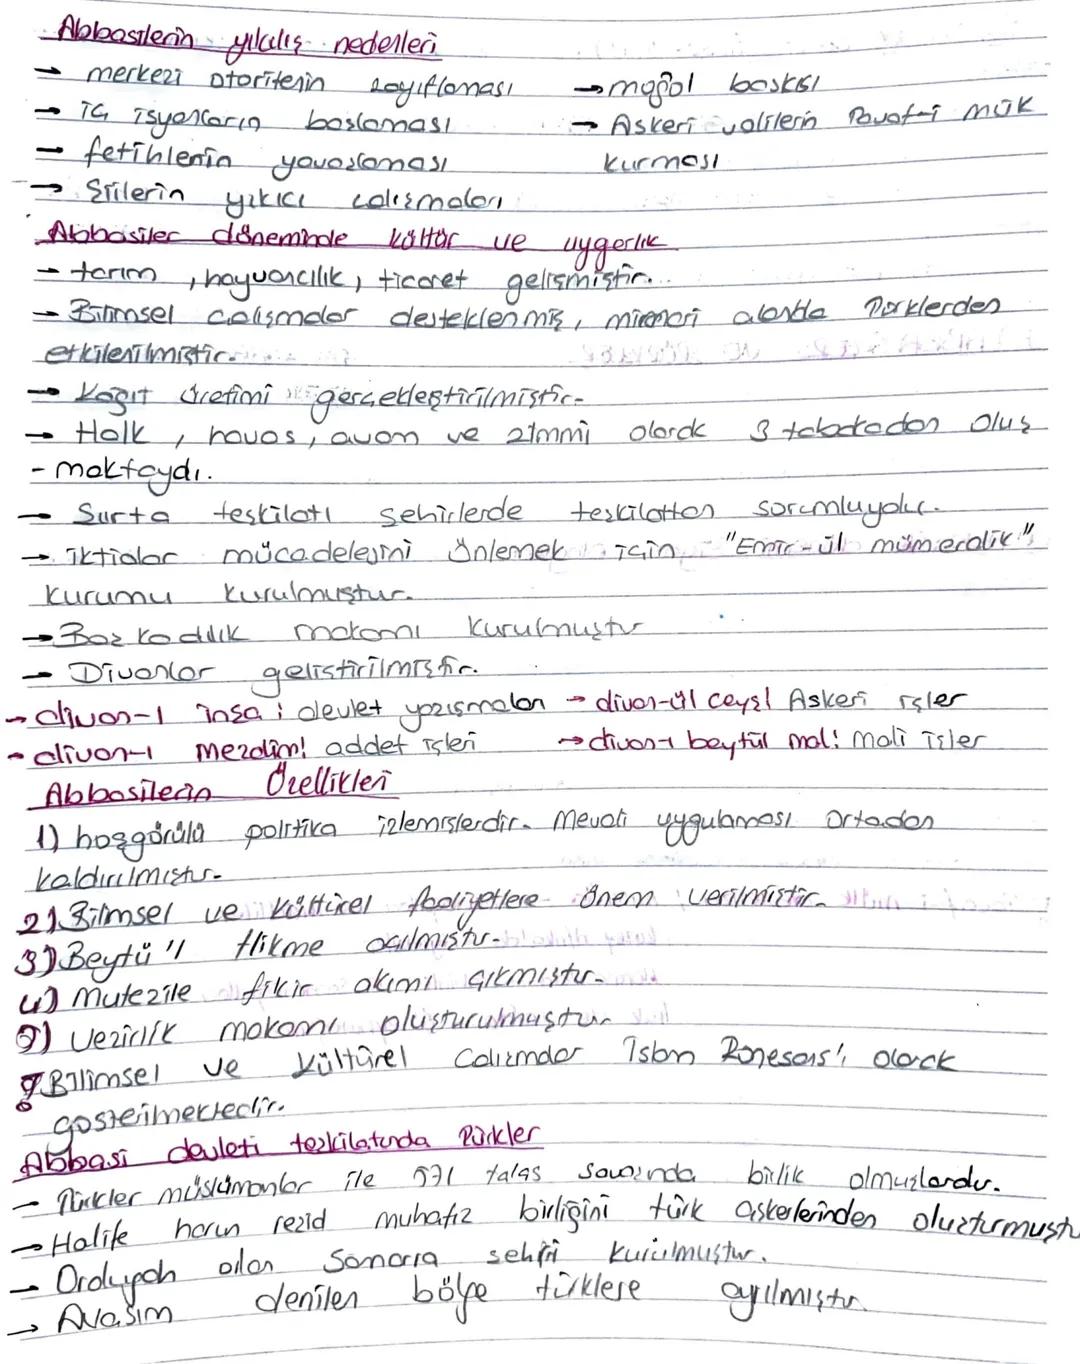 Abbasilerin yıkılış nedenleri
→ merkezi otoritenin zayıflaması → moğol baskısı
→ iç isyanların başlaması → Askeri valilerin Tavaf-i mük
→ fetihlerin yavaşlaması kurması
→ Şiilerin yıkıcı çalışmaları
Abbasiler döneminde kültür ve uygarlık
→ tarım, hayvancılık, ticaret gelişmiştir.
→ Bilimsel çalışmalar desteklenmiş, mimari alanda Türklerden
etkilenilmiştir.
→ Kağıt üretimi gerçekleştirilmiştir.
→ Halk, havas, avam ve zımmi olarak 3 tabakadan oluş
- maktaydı.
→ Surta teşkilatı şehirlerde teşkilattan sorumluydu.
→ iktidar mücadelesini önlemek için "Emir-ül
kurumu kurulmuştur.
→ Baş kadılık makamı kurulmuştur
→ Divanlar geliştirilmiştir.
→ divan-ı inşa: devlet yazışmaları → divan-ül ceyş: Askeri işler
→ divan-ı mezalim: adalet işleri → divan-ı beytül mal: Mali işler
Abbasilerin Özellikleri
1) hoşgörülü politika izlemişlerdir. Mevali uygulaması ortadan
kaldırılmıştır.
2) Bilimsel ve kültürel faaliyetlere önem verilmiştir.
3) Beytü'l Hikme açılmıştır.
4) Mutezile fikir akımı çıkmıştır.
5) vezirlik makamı oluşturulmuştur.
Bilimsel ve kültürel çalışmalar İslam Rönesans'ı olarak
gösterilmektedir.
Abbasi devleti teşkilatında Türkler
→ Türkler müslümanlar ile 751 talas savaşında birlik olmuşlardır.
→ Halife harun reşid muhafız birliğini türk askerlerinden oluşturmuştu
→ Ordugah olan Samarra şehri kurulmuştur.
→ Avasım denilen bölge türklere ayrılmıştır.